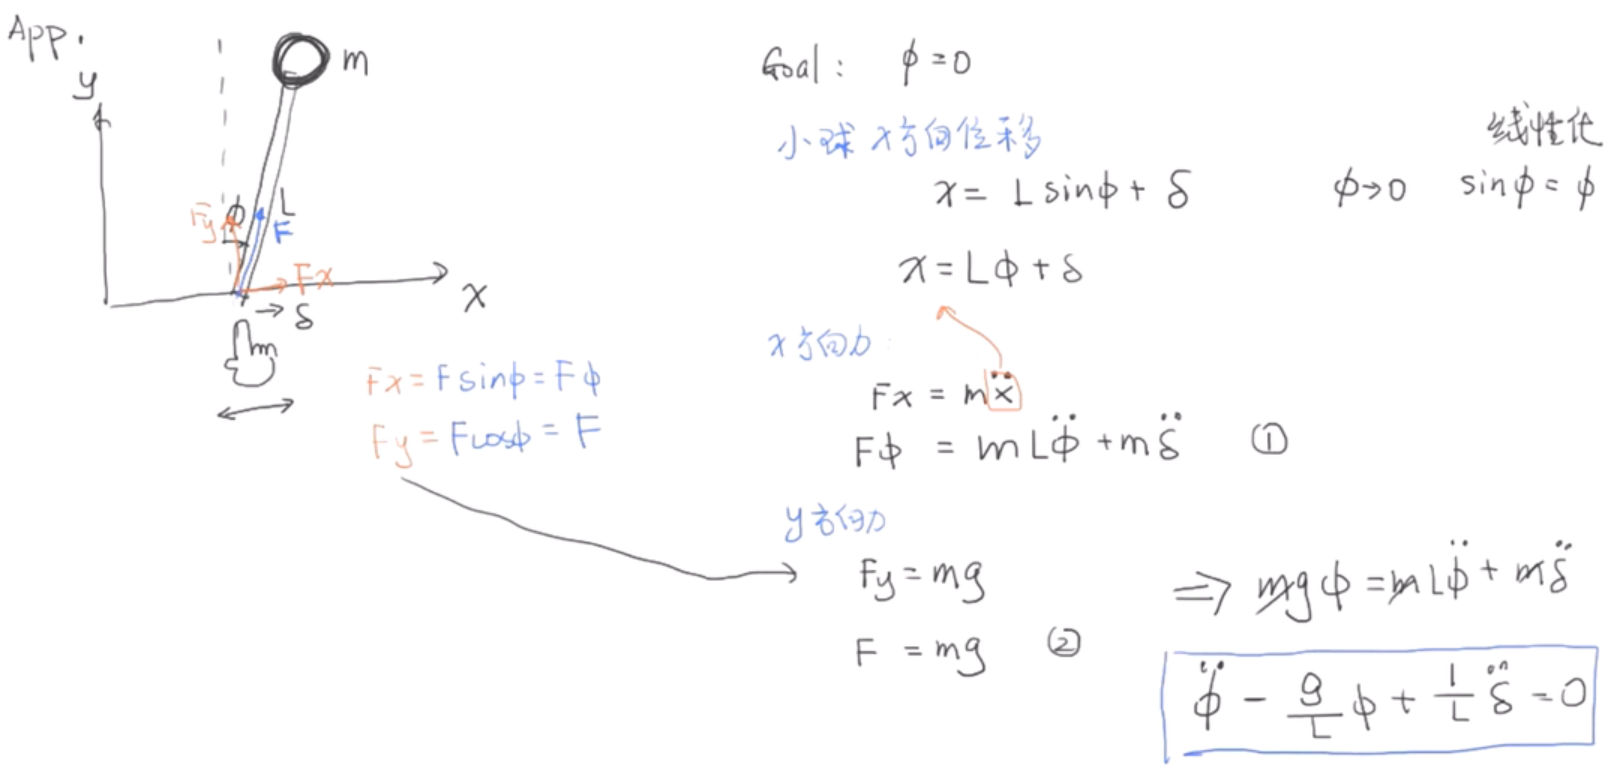 App.
y
m
φ
L
Fy
F
Fx
x
→ δ
Fx = Fsinφ = Fφ
Fy = Fcosφ = F
Goal: φ = 0
小球 x方向位移
线性化
x = L sinφ + δ
φ→0 sinφ = φ
x = Lφ + δ
x方向力
Fx = mẍ
Fφ = mLφ̈ + mδ̈ ①
y方向力
Fy = mg
⇒ mgφ = mLφ̈ + mδ̈
F = mg ②
φ̈ - g/L φ + 1/L δ̈ = 0